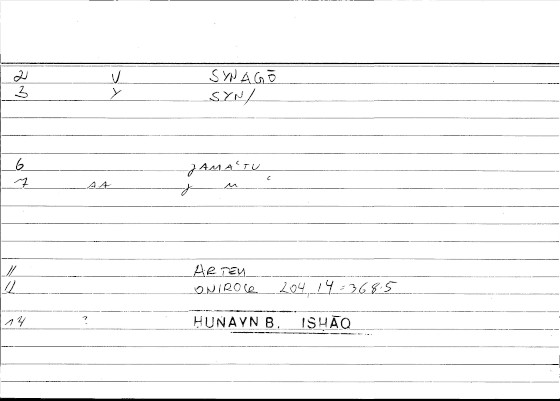 2 V SYNAGŌ
3 Y SYN/
6 JAMAʿTU
7 AA J M ʿ
11 ARTEM
12 ONIROCR 204, 14 = 368.5
14 ? HUNAYN B. ISHĀQ